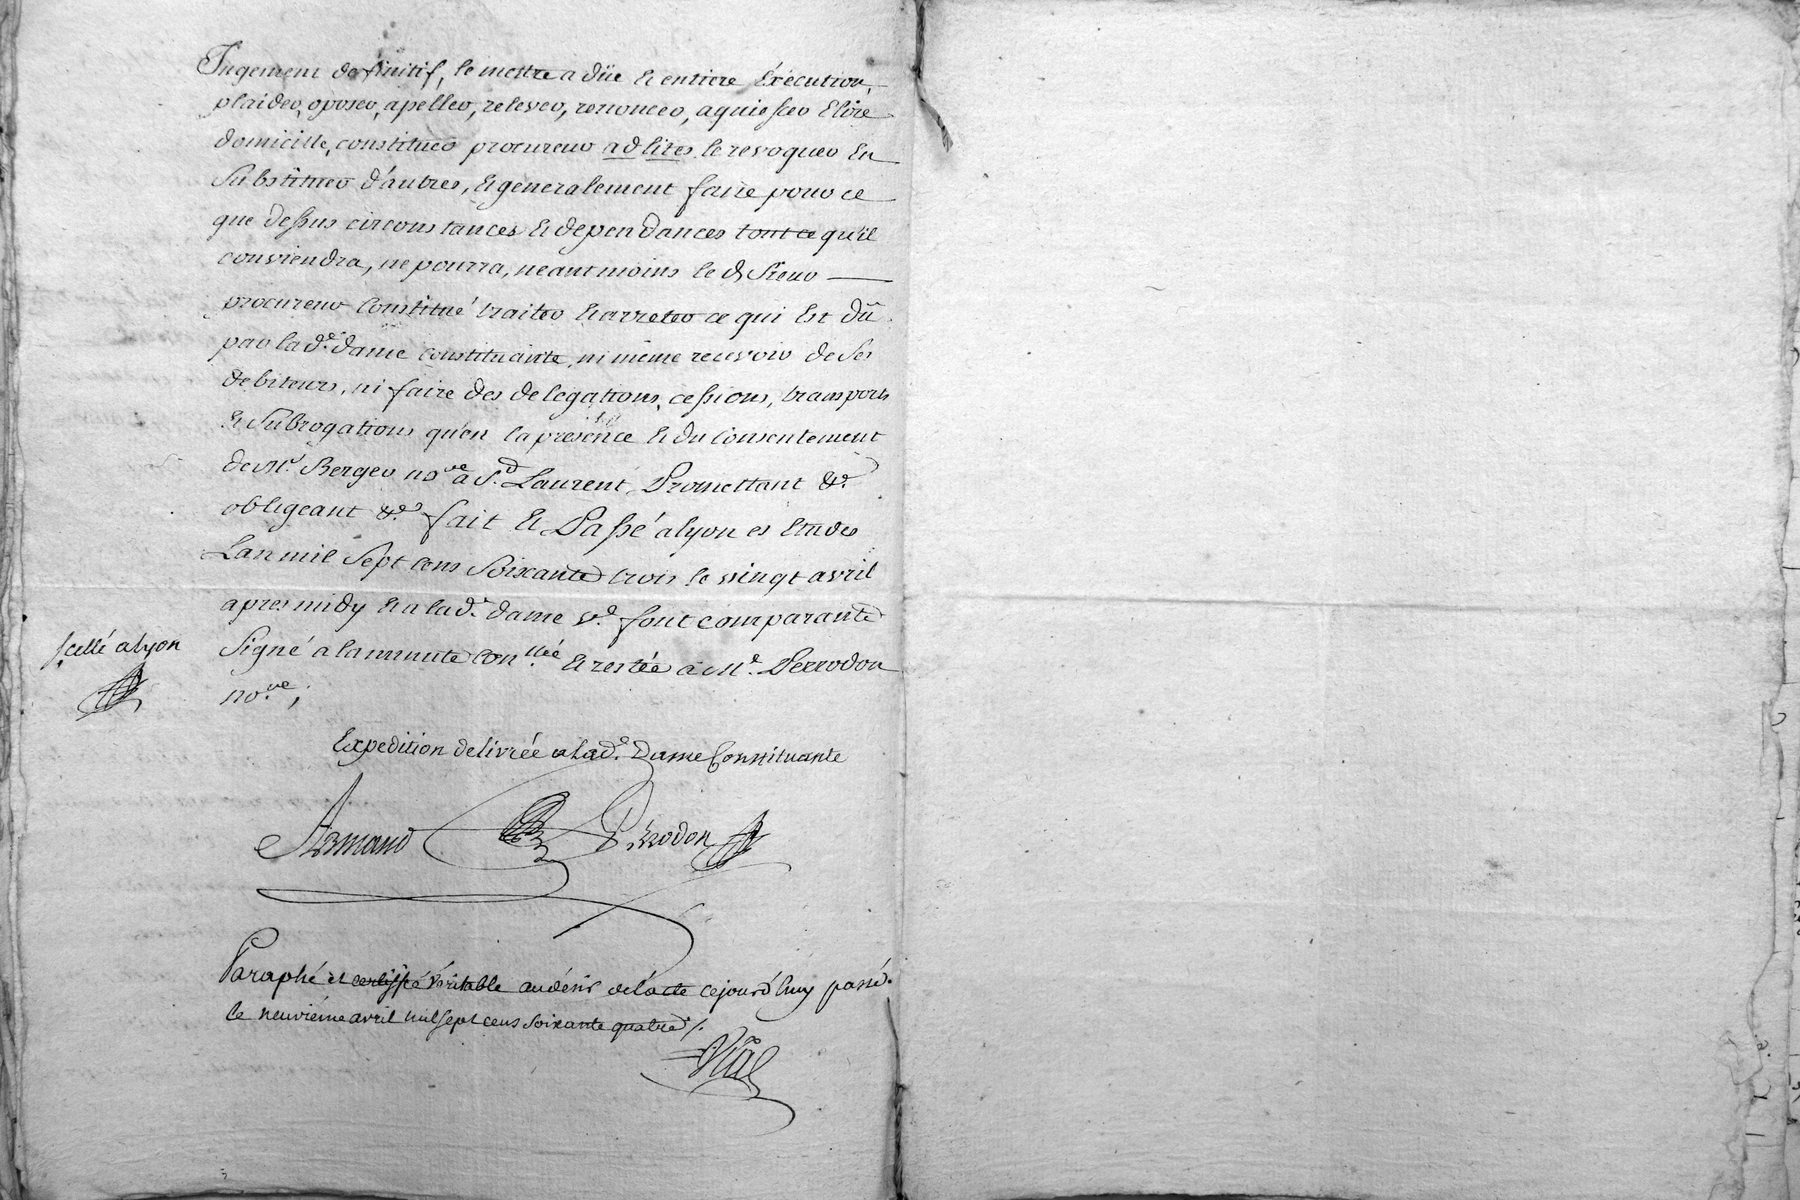 Jugement definitif, le mettre a düe & entiere éxécution,
plaider, oposer, apeller, relever, renoncer, aquiesser Elire
domicille, constituer procureur ad lites, le revoquer En
Substituer d'autres, & generalement faire pour ce
que dessus circonstances & dependances tout ce qu'il
conviendra, ne pourra, neantmoins le d. Sieur
procureur Constitué traiter & arreter ce qui Est dû
par lad.e dame constituante, ni même recevoir de Ses
debiteurs, ni faire des delegations, cessions, transports
& Subrogations qu'en la présence & du Consentement
de M.e Berger no.re a S.t Laurent, Promettant &c.
obligeant &c. fait & Passé a lyon es Etudes
L'an mil Sept Cens Soixante trois le vingt avril
apres midy & a lad.e dame v.e font comparante
Signé a la minute Con.llée & restée a M.e Perrodon
no.re;
scellé a lyon
Expedition delivrée a lad.e Dame Constituante
Armand Perrodon
Paraphé et certiffié véritable au désir de l'acte cejourd'huy passé.
le neuviéme avril mil sept cens soixante quatre ./.
Vial